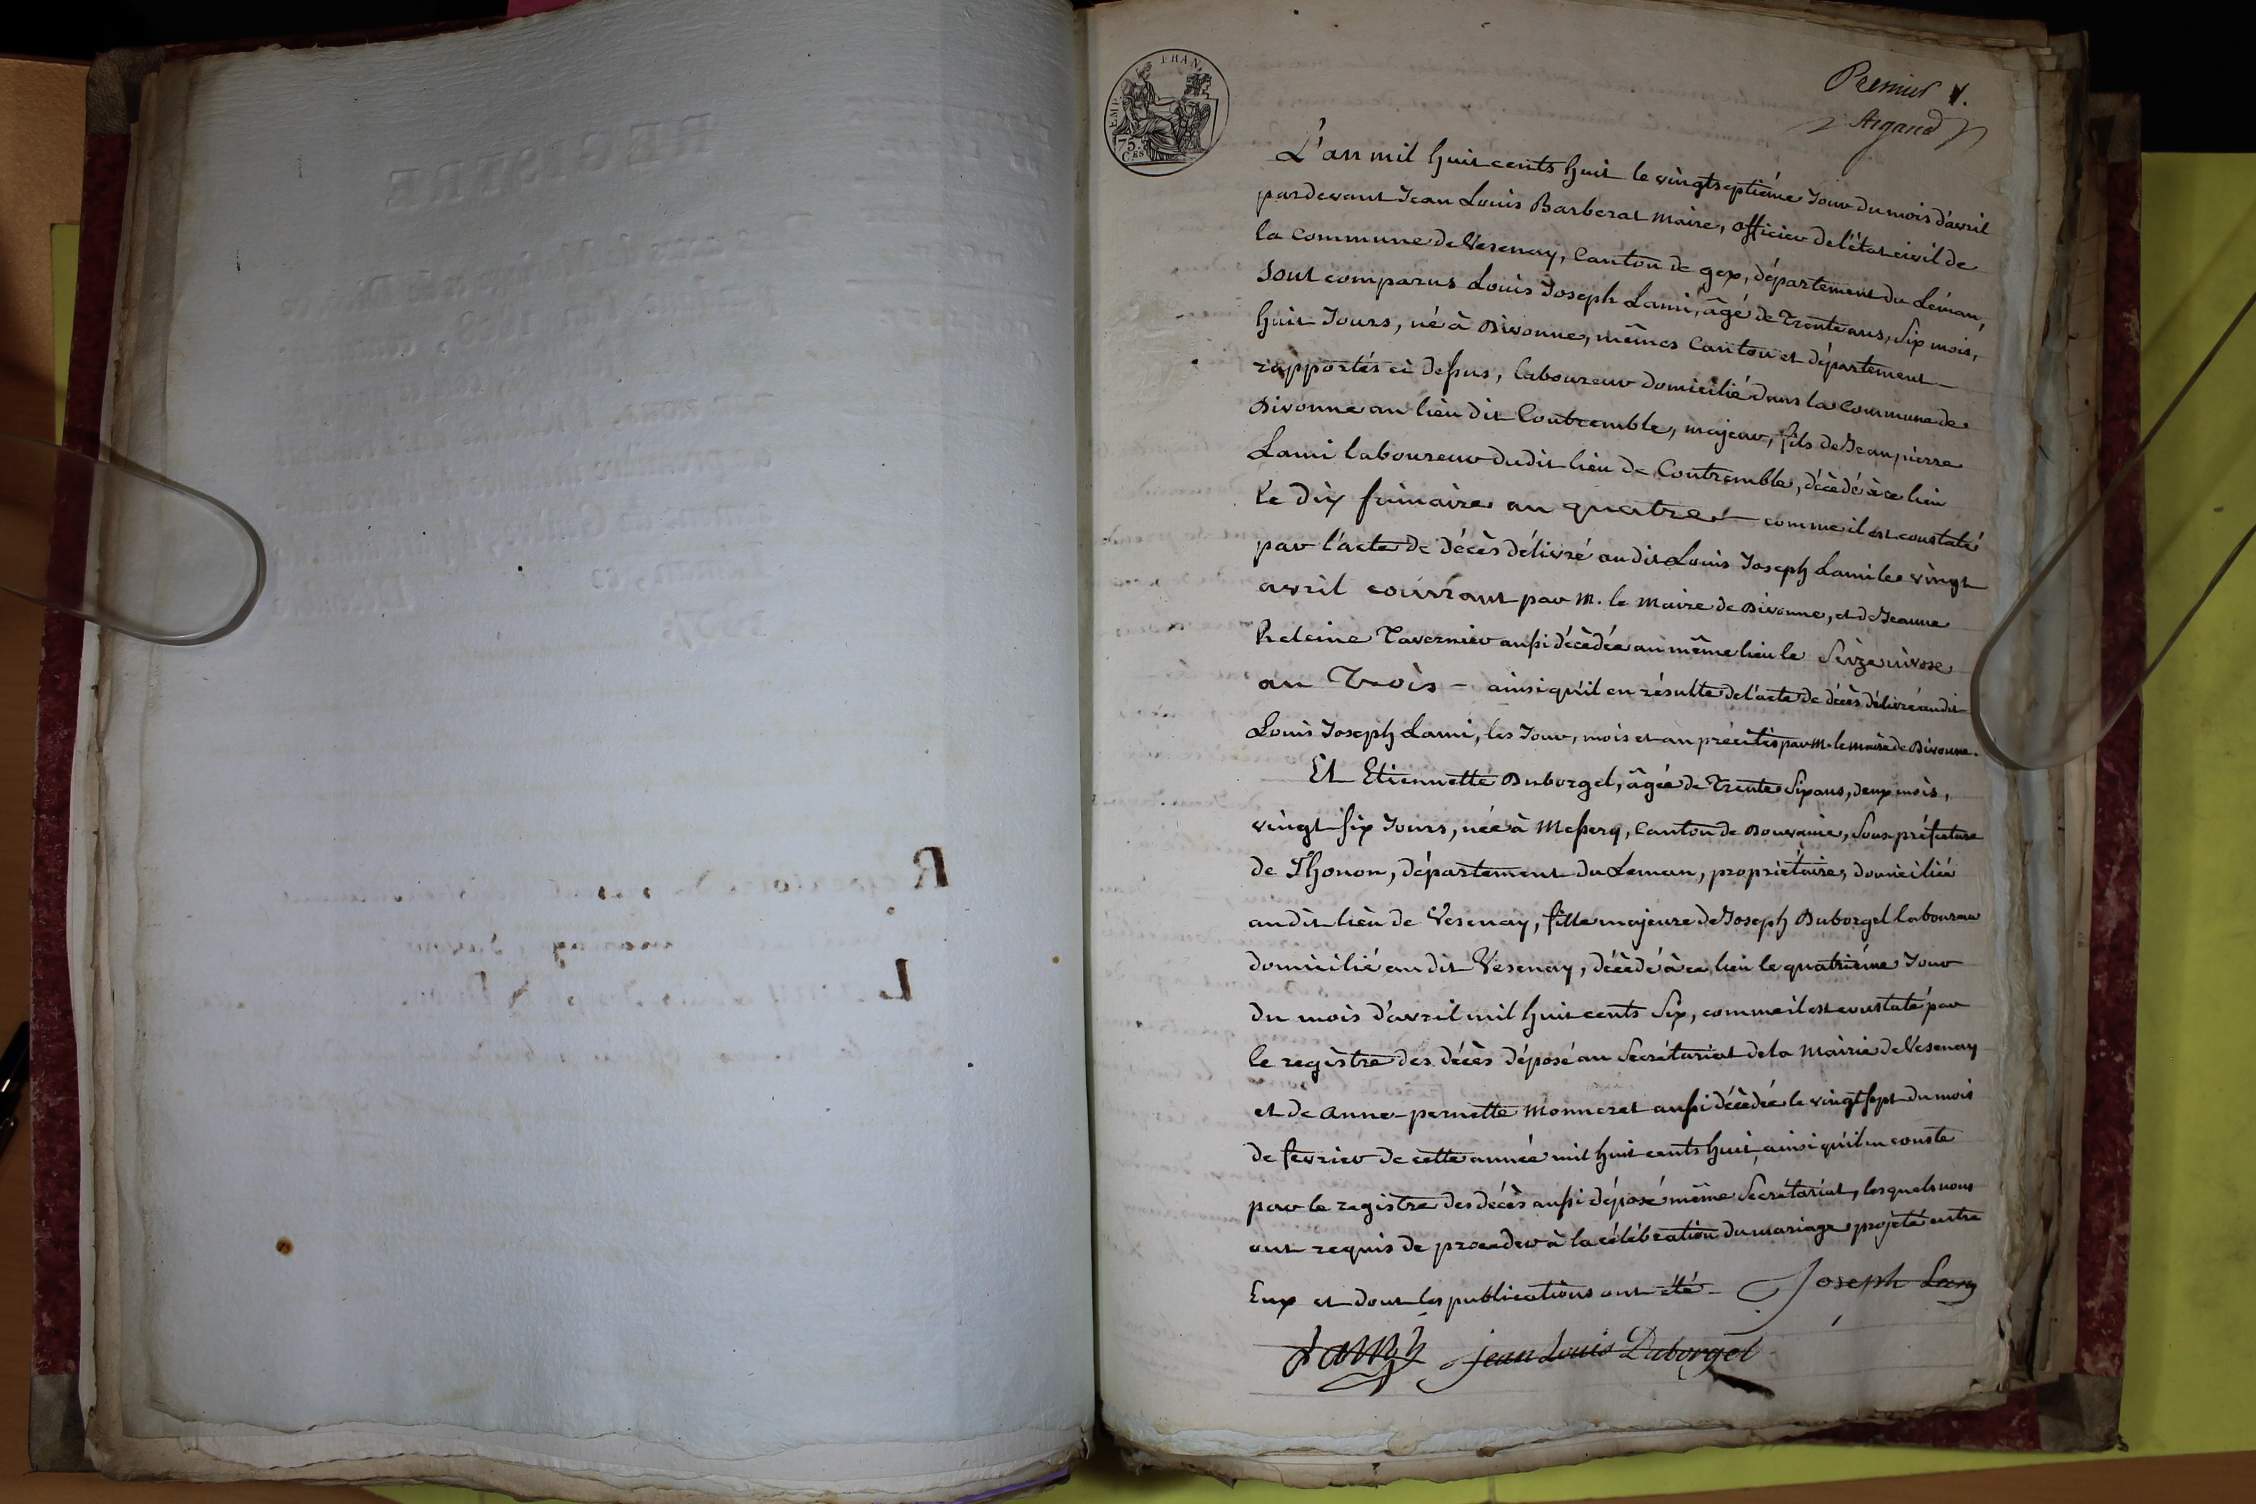 EMP. FRAN.
75. CES
Premier 1.
Argand
L'an mil huit cents huit le vingtseptiéme Jour du mois d'avril
pardevant Jean Louis Barberat maire, officier de l'état civil de
la commune de Vesenay, Canton de gex, département du Léman,
sont comparus Louis Joseph Lami, âgé de trente ans, six mois,
huit Jours, né à Divonne, mêmes Canton et département
rapportés ci dessus, laboureur domicilié dans la commune de
Divonne au lieu dit Contremble, majeur, fils de Jeanpierre
Lami laboureur dudit lieu de Contremble, décédé à ce lieu
le dix frimaire an quatre comme il est constaté
par l'acte de décès délivré audit Louis Joseph Lami le vingt
avril courrant par M. le Maire de Divonne, et de Jeanne
Tavernier aussi décèdée au même lieu le seize nivose
an Trois - ainsi qu'il en résulte de l'acte de décès délivré audit
Louis Joseph Lami, les Jour, mois et an précités par M. le maire de Divonne.
Et Etiennette Duborgel, âgée de trente six ans, deux mois,
vingt six Jours, née à Messery, Canton de Douvaine, Sous préfecture
de Thonon, département du Leman, propriétaire, domiciliée
audit lieu de Vesenay, fille majeure de Joseph Duborgel laboureur
domicilié audit Vesenay, décédé à ce lieu le quatrième Jour
du mois d'avril mil huit cents six, comme il est constaté par
le registre des décès déposé au Secrétariat de la Mairie de Vesenay
et de anne-pernette Monneret aussi décèdée le vingt sept du mois
de fevrier de cette année mil huit cents huit, ainsi qu'il en conste
par le registre des décès aussi déposé même Secrétariat, lesquels nous
ont requis de proceder à la célébration du mariage projeté entre
Eux et dont les publications ont été - Joseph Lamy
Lamy jean Louis Duborgel